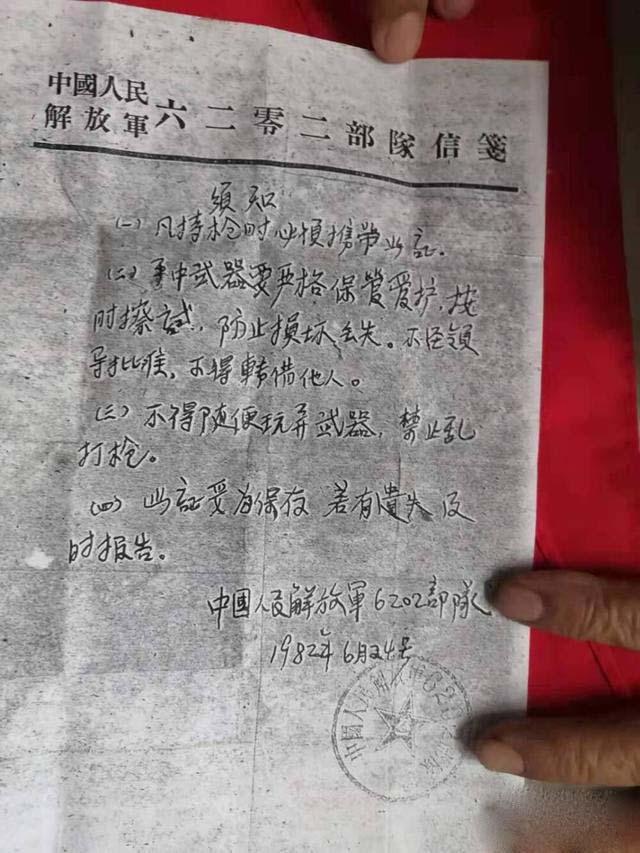 中國人民
解放軍六二零二部隊信箋
須知
(一) 凡持枪时必須携带此証.
(二) 手中武器要严格保管爱护,按
时擦試,防止损坏丢失。不经领
导批准,不得轉借他人。
(三) 不得随便玩弄武器,禁止乱
打枪。
(四) 此証要 保存 若有遺失 及
时报告。
中國人民解放軍6202部隊
1982年6月24号
中國人民 620